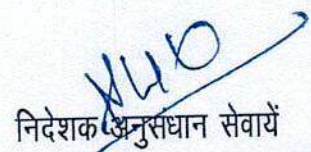 निदेशक अनुसंधान सेवायें